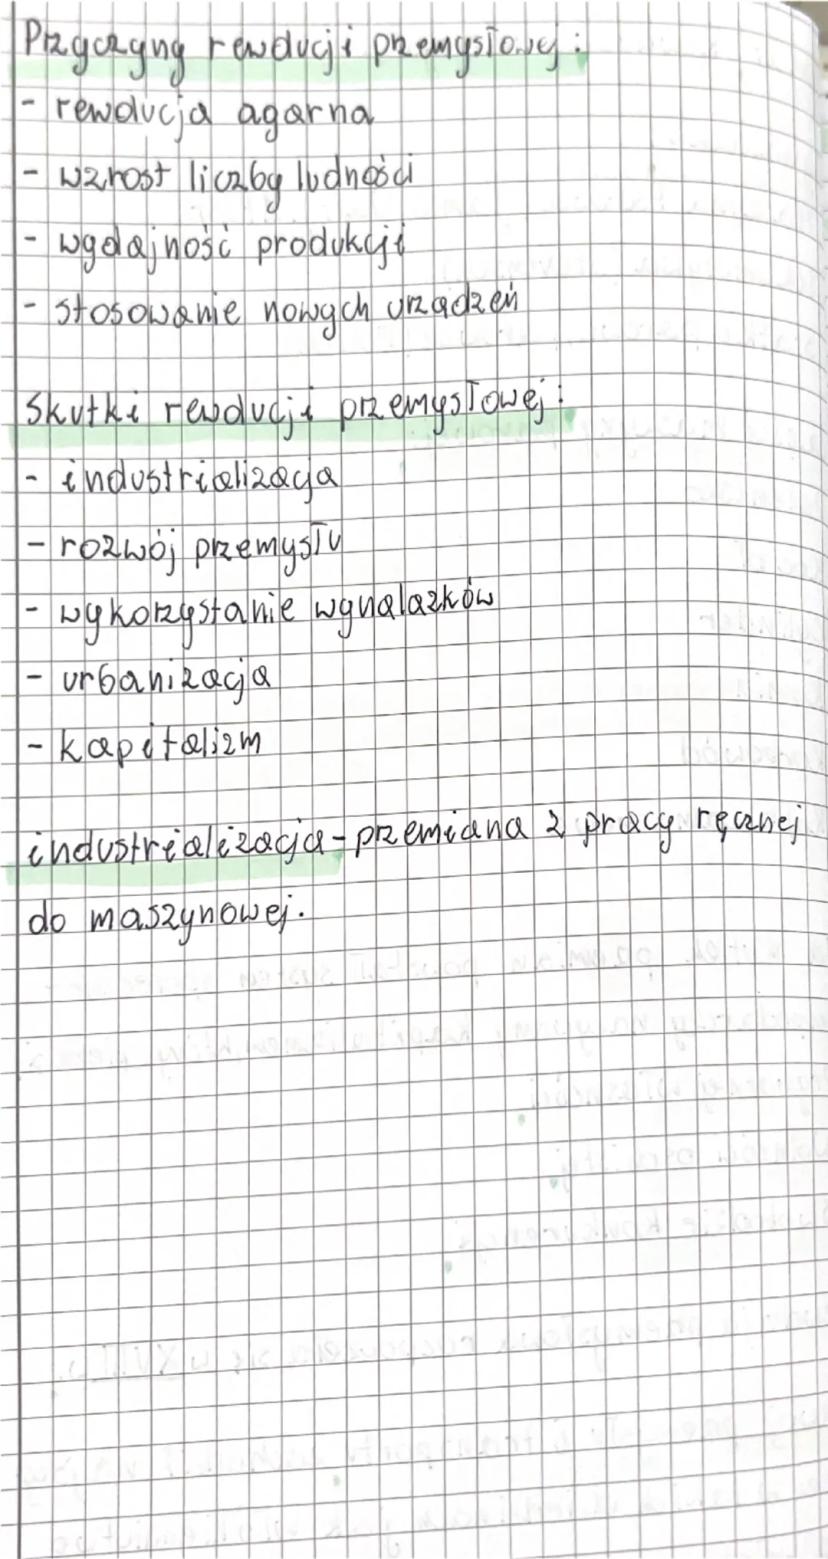 Przyczyny rewolucji przemysłowej:
- rewolucja agarna
- wzrost liczby ludności
- wydajność produkcji
- stosowanie nowych urządzeń
Skutki rewolucji przemysłowej:
- industrializacja
- rozwój przemysłu
- wykorzystanie wynalazków
- urbanizacja
- kapitalizm
industrializacja - przemiana z pracy ręcznej
do maszynowej.